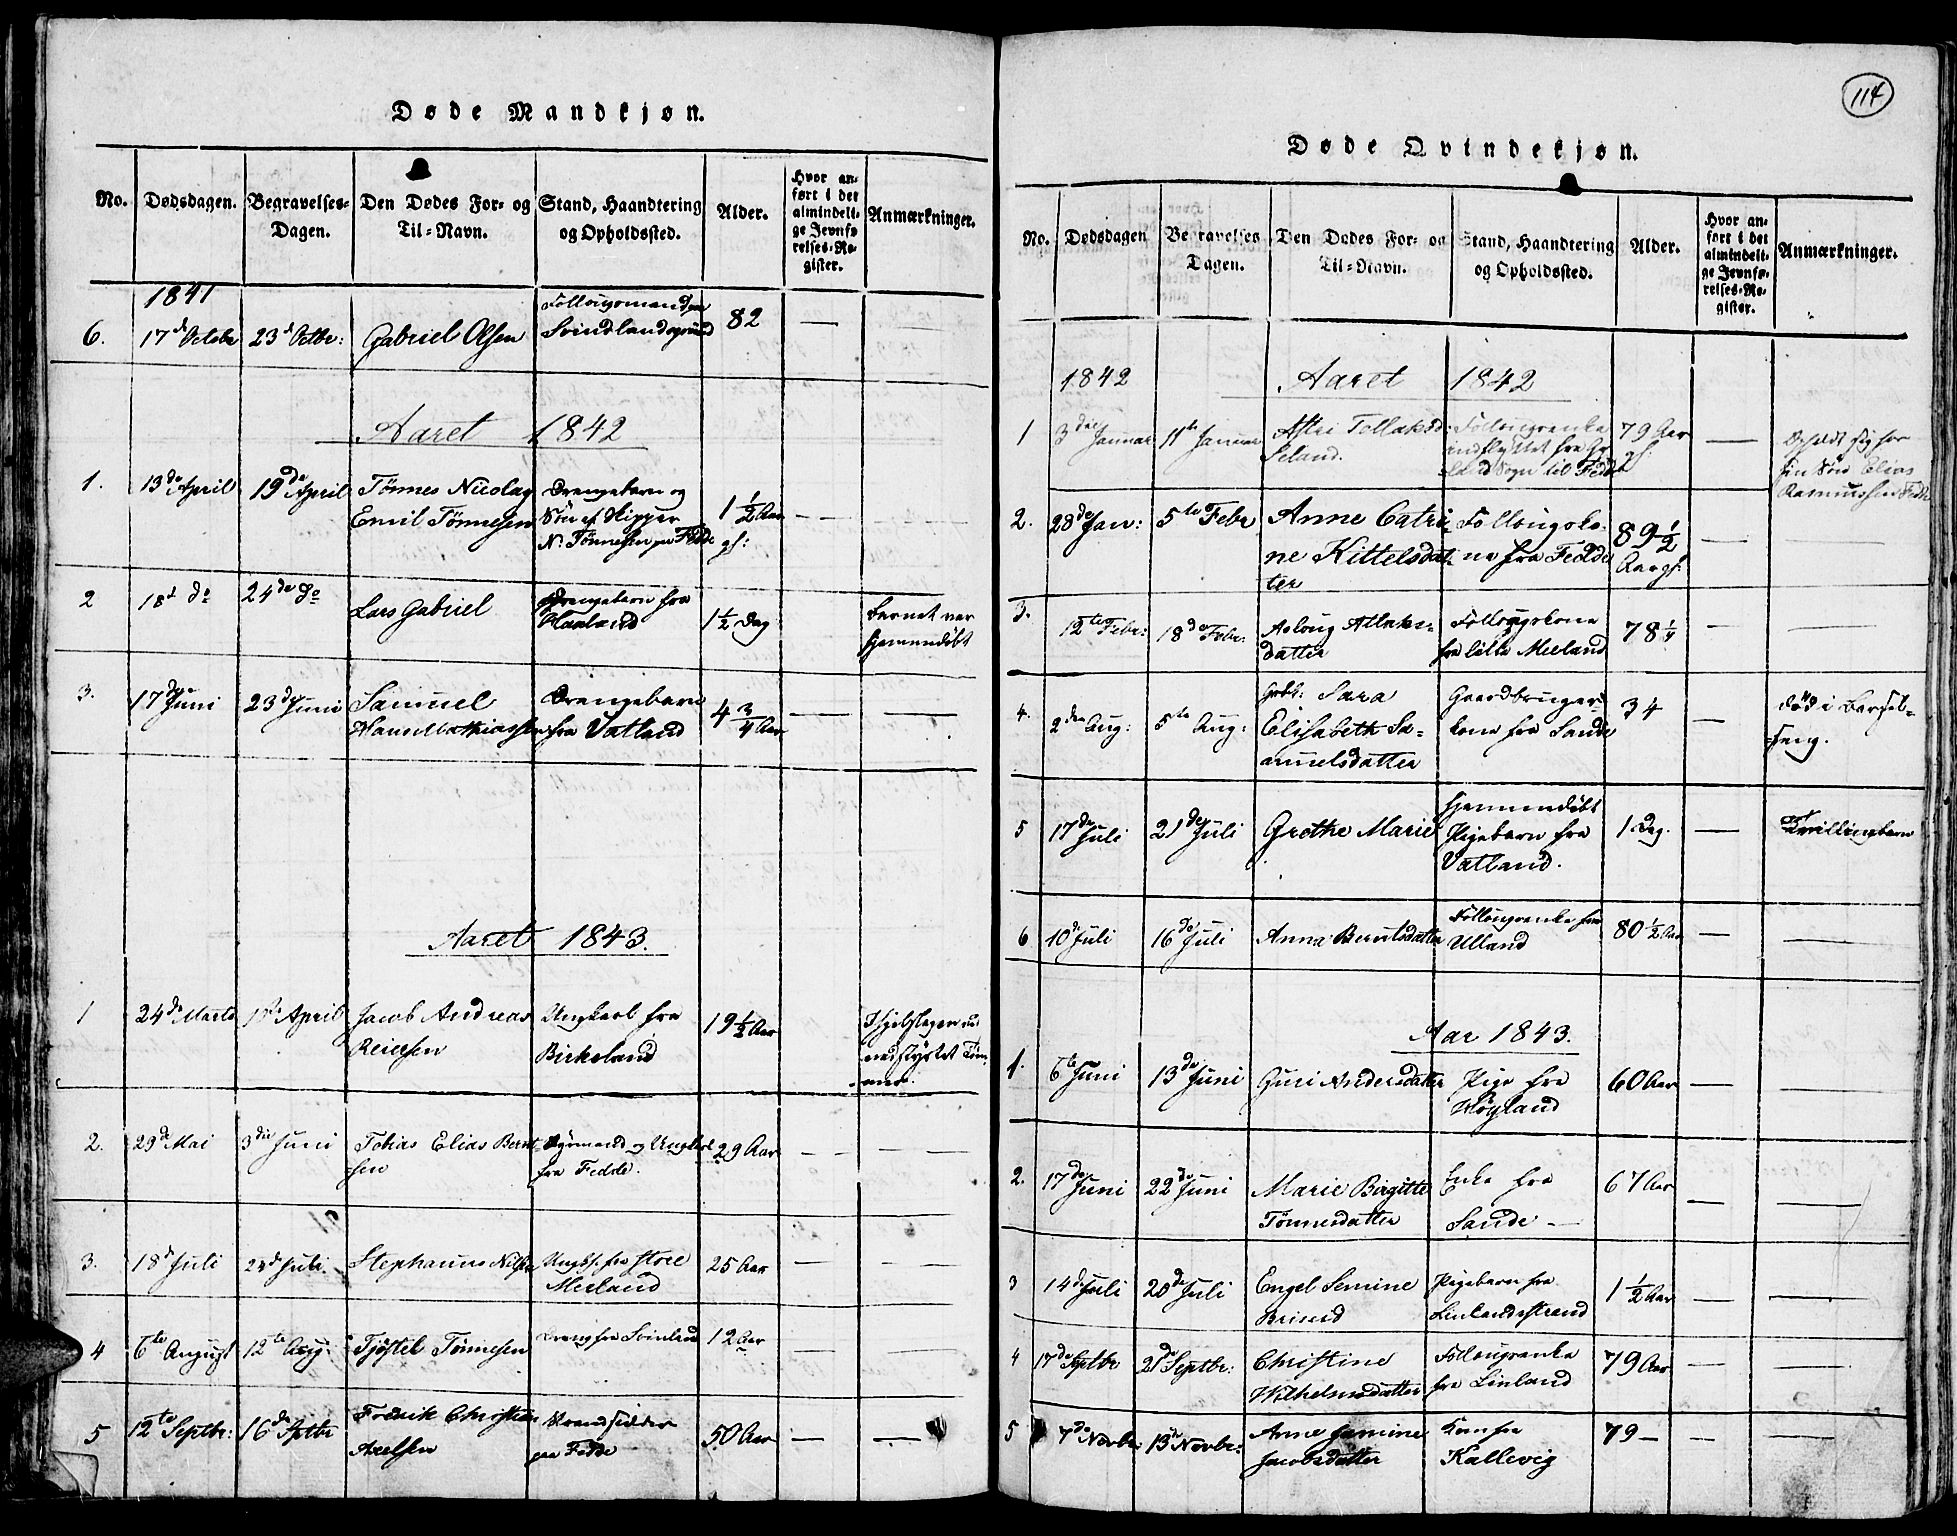 Døde Mandkjøn.
No. Dødsdagen. Begravelses-Dagen. Den Dødes For- og Til-Navn. Stand, Haandtering og Opholdssted. Alder. Hvor anført i det almindelige Jevnførelses-Register. Anmærkninger.
1841
6. 17d Octobr 23d Octbr: Gabriel Olsen Follougsmand paa Svindlandsgrund 82 —
Aaret 1842
1. 13de April 19de April Tønnes Nicolay Emil Tønnesen Drengebarn og Søn af Skipper N. Tønnesen paa Fedde 1 1/2 Aar gl: — —
2 18d do 24de do Lars Gabriel Drengebarn fra Haaland 1 1/2 Dag Barnet var hjemmedøbt
3. 17de Juni 23de Juni Samuel Hans Mathiassen Drengebarn fra Vatland 4 3/4 Aar — —
Aaret 1843.
1 24de Marts 1ste April Jacob Andreas Reiersen Ungkarl fra Birkeland 19 1/2 Aar Ihjelslagen af nedstyrtet Tømmer.
2. 29de Mai 3die Juni Tobias Elias Berntsen Sømand og Ungkarl fra Fedde. 29 Aar — —
3. 18de Juli 24d Juli. Stephanus Nilsen Ungk. fra store Meeland 25 Aar — —
4 6te August 12te Aug: Tjøstel Tønnesen Dreng fra Svinland 12 Aar — —
5 12te Septbr: 16de Septbr Fredrik Christian Axelsen Strandsidder paa Fedde 50 Aar — —
114
Døde Qvindekjøn.
No. Dødsdagen Begravelses Dagen. Den Dødes For- og Til-Navn. Stand, Haandtering og Opholdssted. Alder. Hvor anført i det almindelige Jevnførelses-Register. Anmærkninger.
1842 Aaret 1842
1 3die Januar 11te Januar Astri Tollaksd: Seland. Follougsenke indflyttet fra Sogn til Fedde 79 Aar gl: — Opholdt sig hos sin Søn Elias Rasmussen Fedde
2. 28de Jan: 5te Febr Anne Catrine Kittelsdatter Follougskone fra Fedde 89 1/2 Aar gl: — —
3. 12te Febr: 18de Febr: Asloug Atlaksdatter Follougskone fra lille Meeland 78 1/4 — —
4. 2den Aug: 5te Aug: Sara Elisabeth Samuelsdatter Gaardbrugerkone fra Sande 34 — død i Barselseng.
5 17de Juli 21de Juli Grethe Marie hjemmedøbt Pigebarn fra Vatland. 1 Dag. — Tvillingbarn
6 10d Juli 16de Juli Anna Berntsdatter Follougsenke fra Ulland 80 1/2 Aar — —
Aar 1843.
1. 6te Juni 13de Juni Guri Andersdatter Pige fra Høyland 60 Aar — —
2. 17de Juni 22de Juni Marie Birgitte Tønnesdatter Enke fra Sande — 67 Aar — —
3 14de Juli 20de Juli Engel Semine Pigebarn fra Linlandsstrand 1 1/2 Aar — —
4 17de Septbr 21de Septbr: Christine Wilhelmsdatter Follougsenke fra Linland 79 Aar — —
5 7de Novbr 13de Novbr: Anne Jacobsdatter Kone fra Kallevig 79 — — —